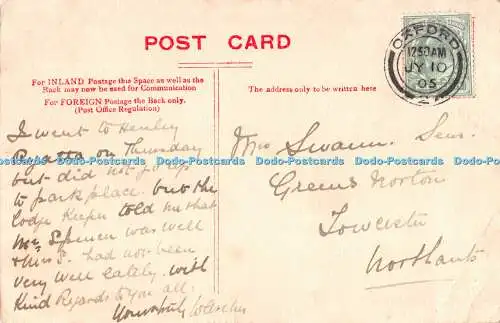 POST CARD
For INLAND Postage this Space as well as the
Back may now be used for Communication
For FOREIGN Postage the Back only.
(Post Office Regulation)
The address only to be written here
OXFORD
1250AM
JY 10
05
I went to Henley
Regatta on Thursday
but did not go up
to park place. but the
lodge Keeper told me that
Mr Spencer was well
& Mrs S. had not been
very well lately. with
Kind Regards to you all.
Mrs Swann. Senr.
Greens Norton
Towcester
Northants
Dodo-Postcards Dodo-Postcards Dodo-Postcards Dodo-Postcards Dodo-Postcards